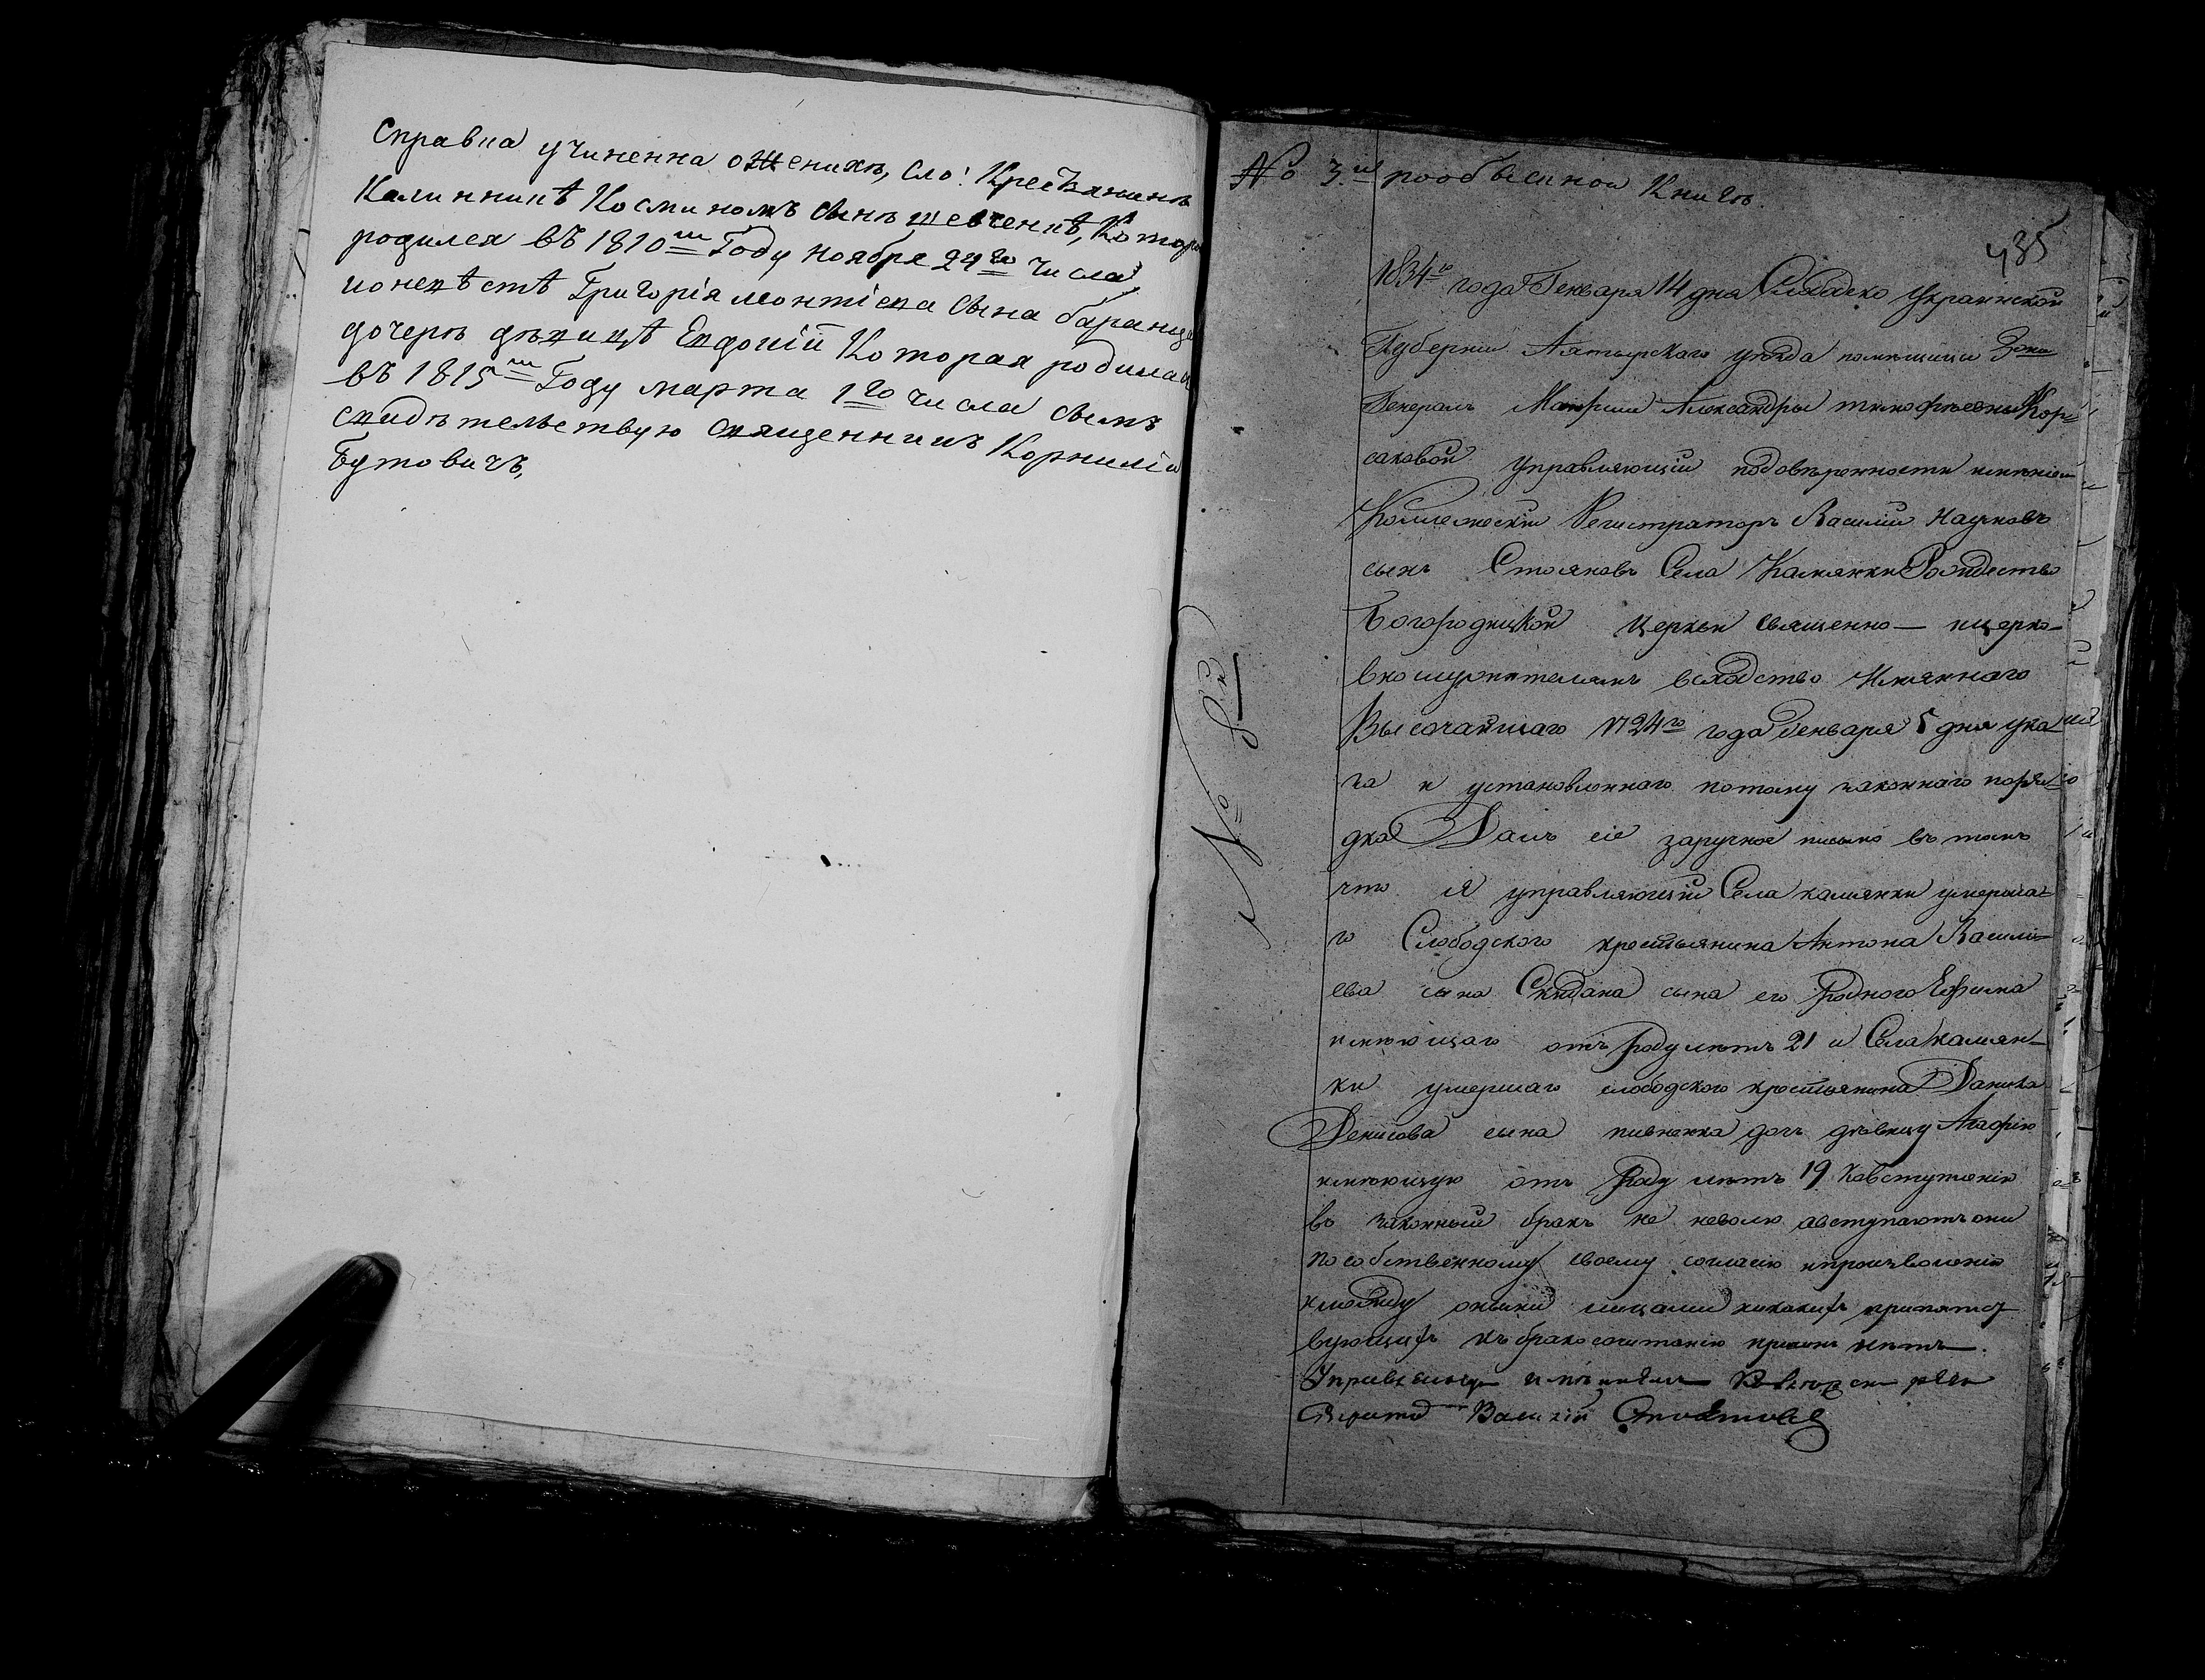 Справка учиненна оженихѣ, сло: Крестянинѣ
Калинникѣ Косминомъ сынѣ шевченкѣ, Котор
родился въ 1810ᵐ Году Ноября 24го числа,
ионевѣстѣ Григорія леонтіева сына баранца
дочерѣ дѣвицѣ Евдокій Которая родилась
въ 1815ᵐ Году марта 1го числа симъ
свидѣтельствую священникъ Корнилій
Бутовичъ,
№ 3й пообыскной Книгѣ.
435
1834го года Генваря 14 дня Слободско Украинской
Губерніи Ахтырскаго уѣзда помѣщици
Генералъ Маіорши Александры тимофѣевны Кор=
саковой Управляющій подовѣренности имѣніем
Коллежскій Регистраторъ Василій Наумовъ
сынъ Стояновъ Села Камянки Рождество
Богородицкой Церкви священно— ицерко—
вно служителямъ вслѣдство Имяннаго
Высочайшаго 1724го года Генваря 5 дня ука
за и установленнаго потому законнаго поря
дка Далъ сіе заручное письмо въ томъ
что я управляющій Села камянки умерша=
го Слободского крестьянина Антона Василі—
ева сына Скидана сына его Родного Ефима
имѣющаго отъ роду лѣтъ 21 и Села камян—
ки умершаго слободского крестьянина Данила
Денисова сына пивненка доч дѣвицу Агафію
имѣющую отъ Роду лѣтъ 19 Ковступленію
въ законный бракъ не неволю авступаютъ они
пособственному своему согласію ипроизволенію
имежду оными лицами никакихъ препятст
вующихъ къ бракосочетанію причинъ нѣтъ.
Управляющій имѣніемъ Колежскій реги
стратор Василій Стояновъ
№ 8й